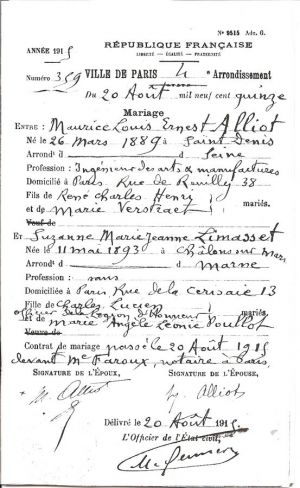 N° 9515 Adc. G.
RÉPUBLIQUE FRANÇAISE
LIBERTÉ — ÉGALITÉ — FRATERNITÉ
ANNÉE 1915
Numéro 359 VILLE DE PARIS 4e Arrondissement
Du 20 Août mil neuf cent quinze
Mariage
ENTRE : Maurice Louis Ernest Alliot
Né le 26 Mars 1889 à Saint Denis
Arrondt d Seine
Profession : Ingénieur des arts & manufactures
Domicilié à Paris Rue de Reuilly 38
Fils de René Charles Henry
et de Marie Verstraet } mariés.
Veuf de
ET Suzanne Marie Jeanne Limasset
Née le 11 mai 1893 à Châlons sur Marne
Arrondt d Marne
Profession : sans
Domiciliée à Paris Rue de la Cerisaie 13
Fille de Charles Lucien
officier de la Légion d'Honneur } mariés.
et de Marie Angèle Léonie Poullot
Veuve de
Contrat de mariage passé le 20 Août 1915
devant Me Faroux, notaire à Paris
SIGNATURE DE L'ÉPOUX, SIGNATURE DE L'ÉPOUSE,
M. Alliot Alliot
Délivré le 20 Août 1915.
L'Officier de l'État civil,